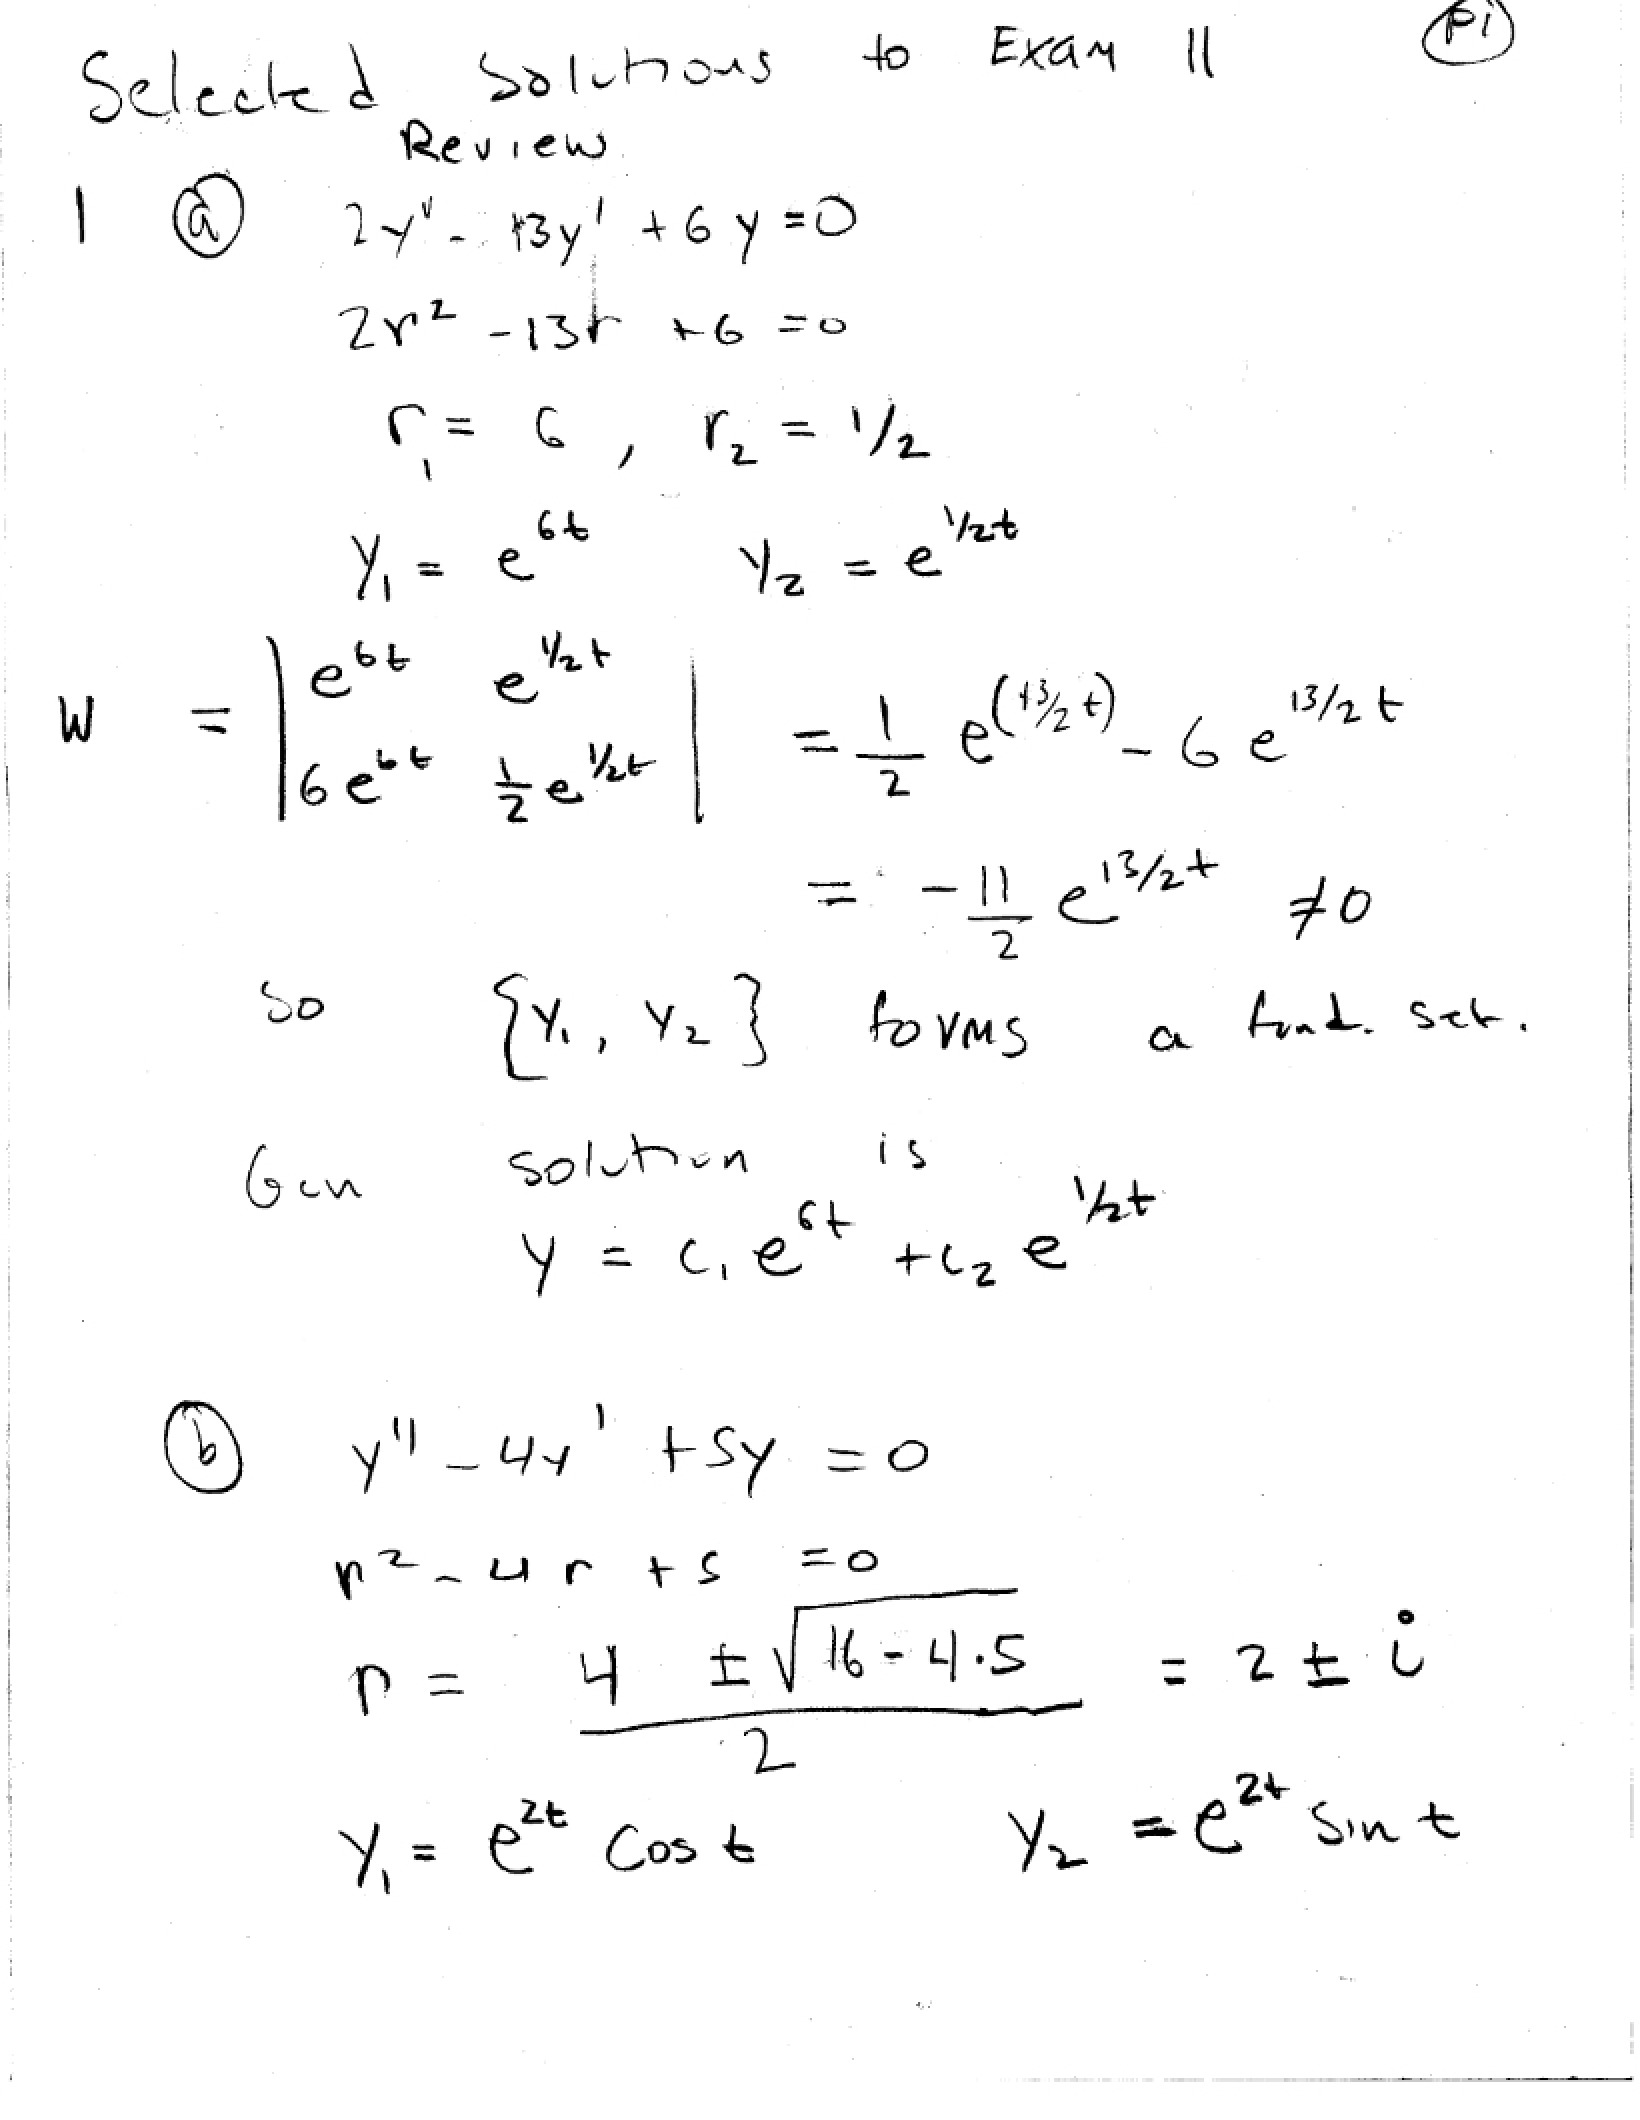 Selected Solutions to Exam II (P1)
Review
1 (a) 2y'' - 13y' + 6y = 0
2r² - 13r + 6 = 0
r₁ = 6 , r₂ = 1/2
y₁ = e^{6t} y₂ = e^{1/2t}
W = | e^{6t} e^{1/2t} ; 6e^{6t} 1/2 e^{1/2t} | = 1/2 e^{(13/2 t)} - 6e^{13/2 t}
= -11/2 e^{13/2 t} ≠ 0
So {y₁, y₂} forms a fund. set.
Gen solution is
y = c₁e^{6t} + c₂e^{1/2t}
(b) y'' - 4y' + 5y = 0
r² - 4r + 5 = 0
r = (4 ± √(16 - 4·5))/2 = 2 ± i
y₁ = e^{2t} cos t y₂ = e^{2t} sin t